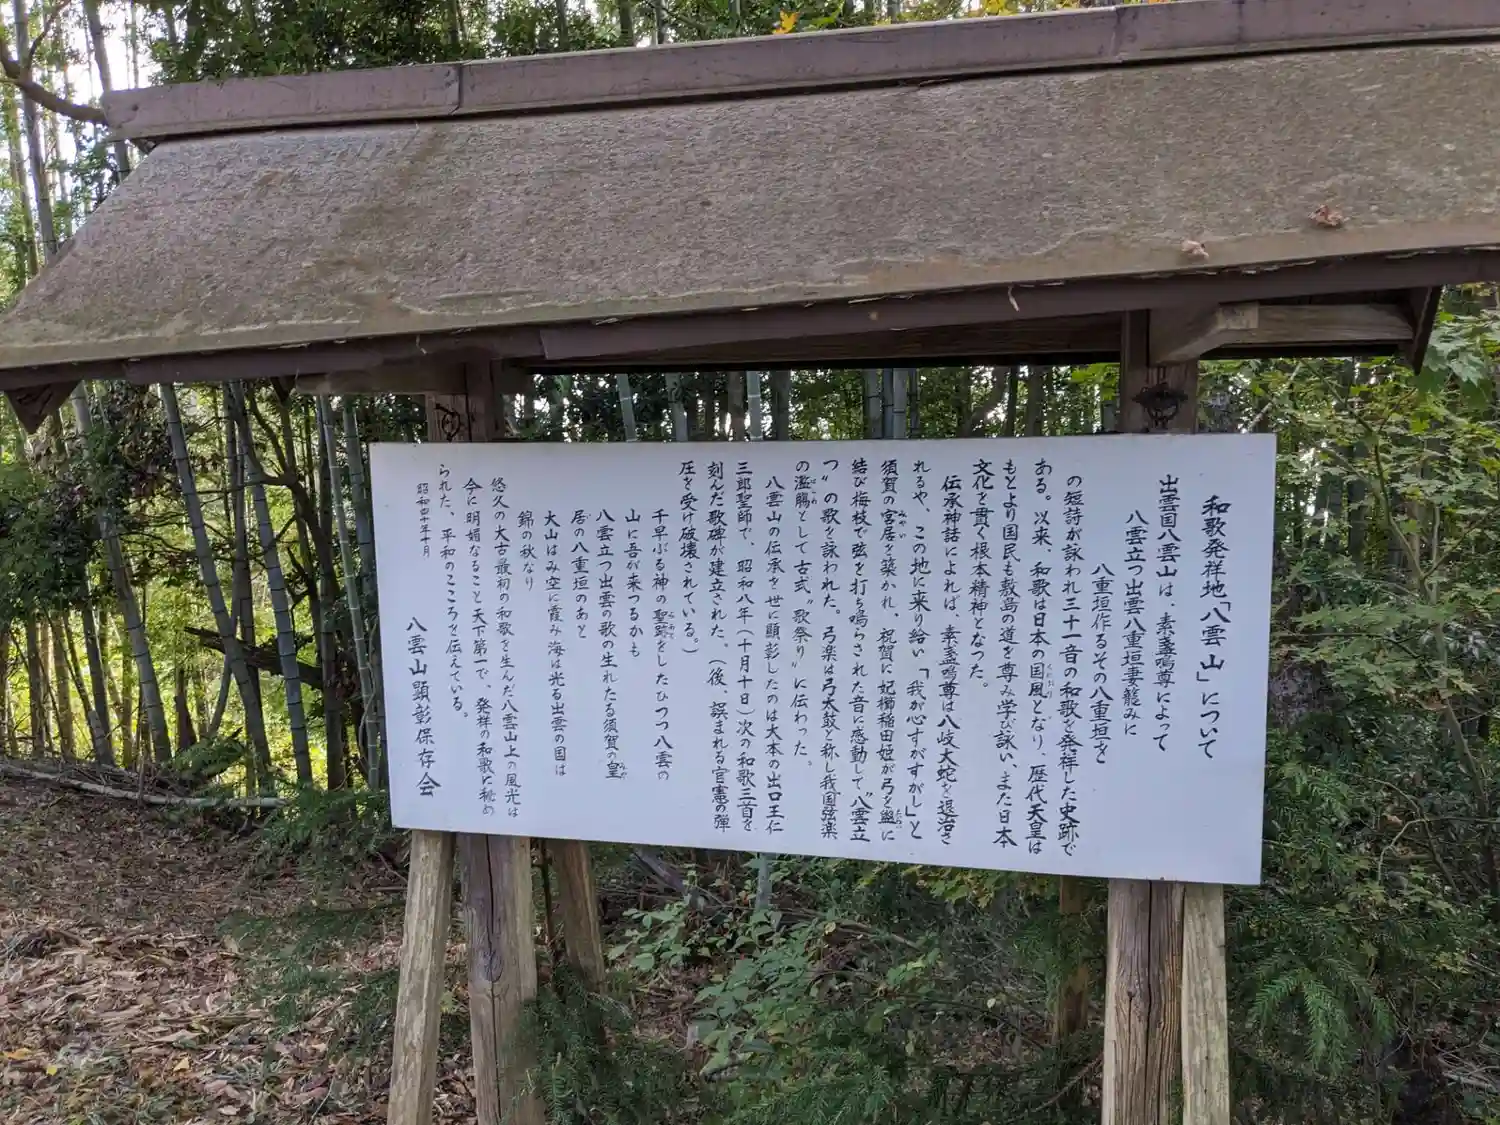 和歌発祥地「八雲山」について
出雲国八雲山は、素盞鳴尊によって
八雲立つ出雲八重垣妻籠みに
八重垣作るその八重垣を
の短詩が詠われ三十一音の和歌を発祥した史跡で
ある。以来、和歌は日本の国風となり、歴代天皇は
もとより国民も敷島の道を尊み学び詠い、また日本
文化を貫く根本精神となった。
伝承神話によれば、素盞鳴尊は八岐大蛇を退治さ
れるや、この地に来り給い「我が心すがすがし」と
須賀の宮居を築かれ、祝賀に妃櫛稲田姫が弓を盥に
結び梅枝で弦を打ち鳴らされた音に感動して〝八雲立
つ〟の歌を詠われた。弓楽は弓太鼓と称し我国弦楽
の濫觴として古式〝歌祭り〟に伝わった。
八雲山の伝承を世に顕彰したのは大本の出口王仁
三郎聖師で、昭和八年(十月十日)次の和歌三首を
刻んだ歌碑が建立された。(後、誤まれる官憲の弾
圧を受け破壊されている。)
千早ぶる神の聖跡をしたひつつ八雲の
山に吾が来つるかも
八雲立つ出雲の歌の生れたる須賀の皇
居の八重垣のあと
大山はみ空に霞み海は光る出雲の国は
錦の秋なり
悠久の大古最初の和歌を生んだ八雲山上の風光は
今に明媚なること天下第一で、発祥の和歌に秘め
られた、平和のこころを伝えている。
昭和四十年十月
八雲山顕彰保存会